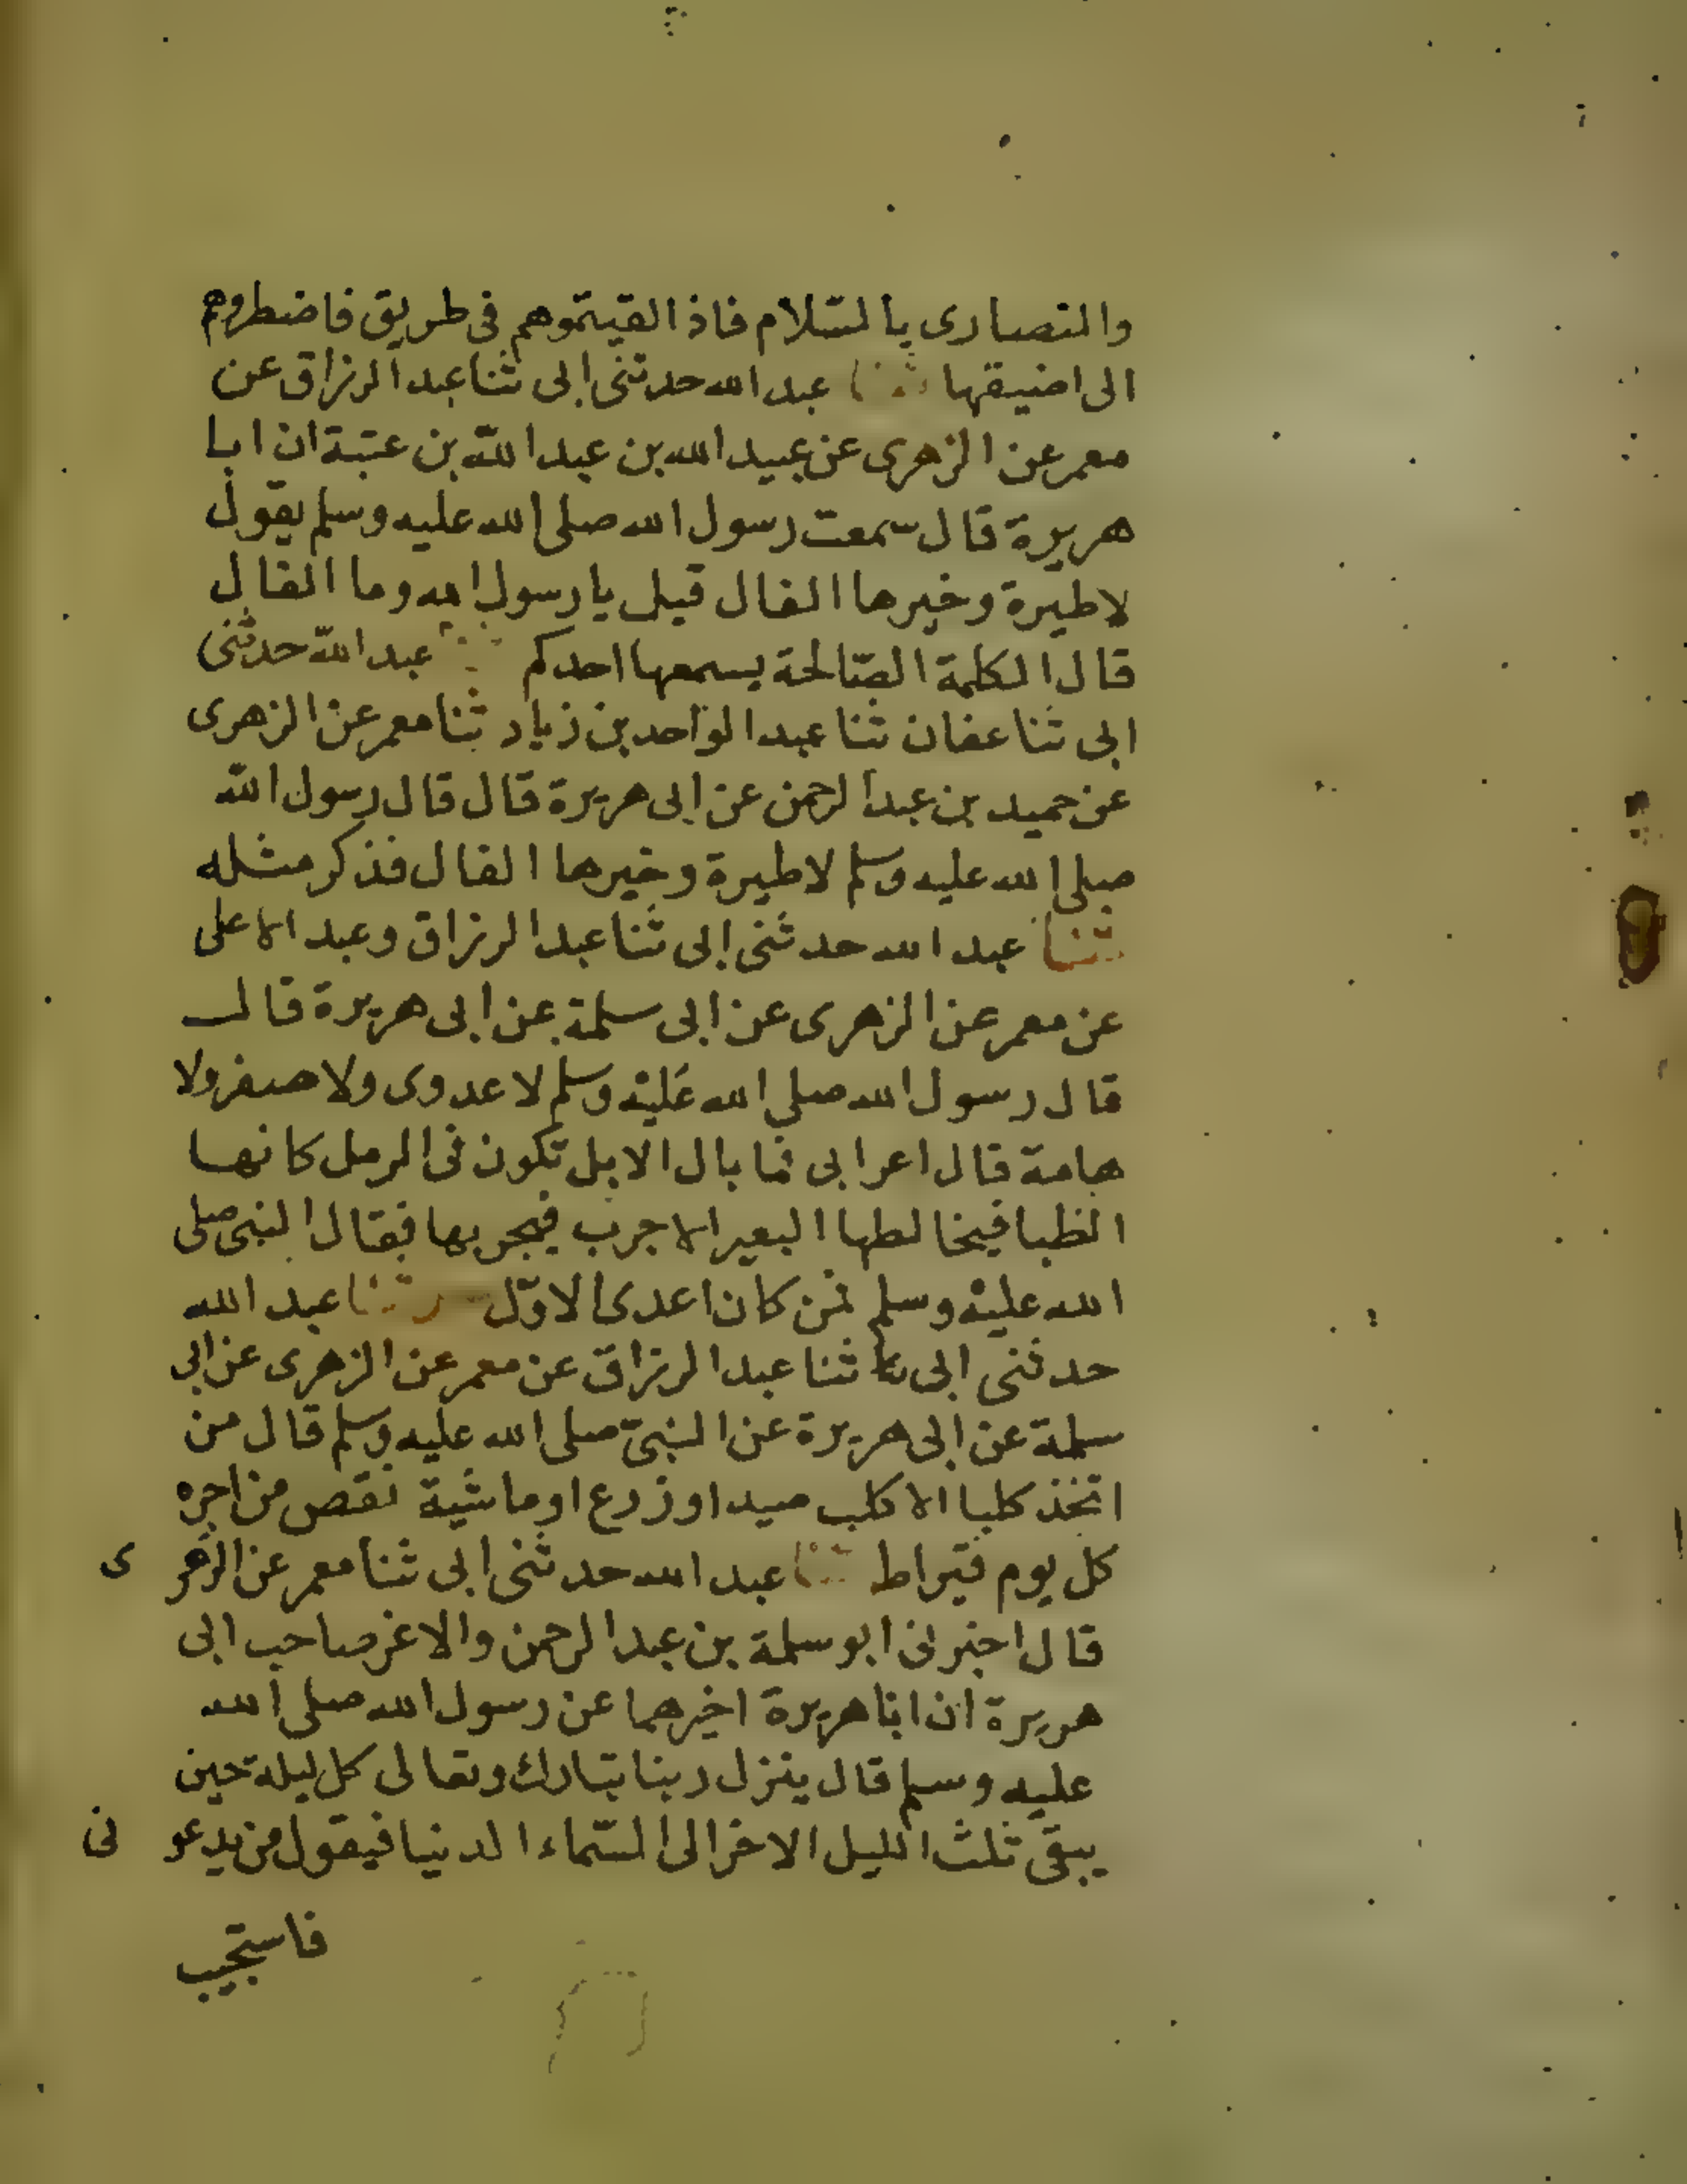 والنصارى بالسّلام فاذ القيتموهم فى طريق فاضطروهم
الى اضيقها ثنا عبد الله حدثنى ابى ثنا عبد الرزاق عن
معمر عن الزهرى عن عبيد الله بن عبد الله بن عتبة ان ابا
هريرة قال سمعت رسول الله صلى الله عليه وسلم يقول
لا طيرة وخيرها الفال قيل يا رسول الله وما الفال
قال الكلمة الصّالحة يسمعها احدكم ثنا عبد الله حدثنى
ابى ثنا عفان ثنا عبد الواحد بن زياد ثنا معمر عن الزهرى
عن حميد بن عبد الرحمن عن ابى هريرة قال قال رسول الله
صلى الله عليه وسلم لا طيرة وخيرها الفال فذكر مثله
ثنا عبد الله حدثنى ابى ثنا عبد الرزاق وعبد الاعلى
عن معمر عن الزهرى عن ابى سلمة عن ابى هريرة قال
قال رسول الله صلى الله عليه وسلم لا عدوى ولا صفر ولا
هامة قال اعرابى فما بال الابل تكون فى الرمل كانها
الظبا فيخالطها البعير الاجرب فيجربها فقال النبى صلى
الله عليه وسلم فمن كان اعدى الاوّل ثنا عبد الله
حدثنى ابى ثنا عبد الرزاق عن معمر عن الزهرى عن ابى
سلمة عن ابى هريرة عن النبىّ صلى الله عليه وسلم قال من
اتخذ كلبا الا كلب صيد او زرع او ماشية نقص من اجره
كل يوم قيراط ثنا عبد الله حدثنى ابى ثنا معمر عن الزهرى
قال اخبرنى ابو سلمة بن عبد الرحمن والاغر صاحب ابى
هريرة ان ابا هريرة اخبرهما عن رسول الله صلى الله
عليه وسلم قال ينزل ربنا تبارك وتعالى كل ليلة حين
يبقى ثلث الليل الاخر الى السّماء الدنيا فيقول من يدعونى
فاستجيب